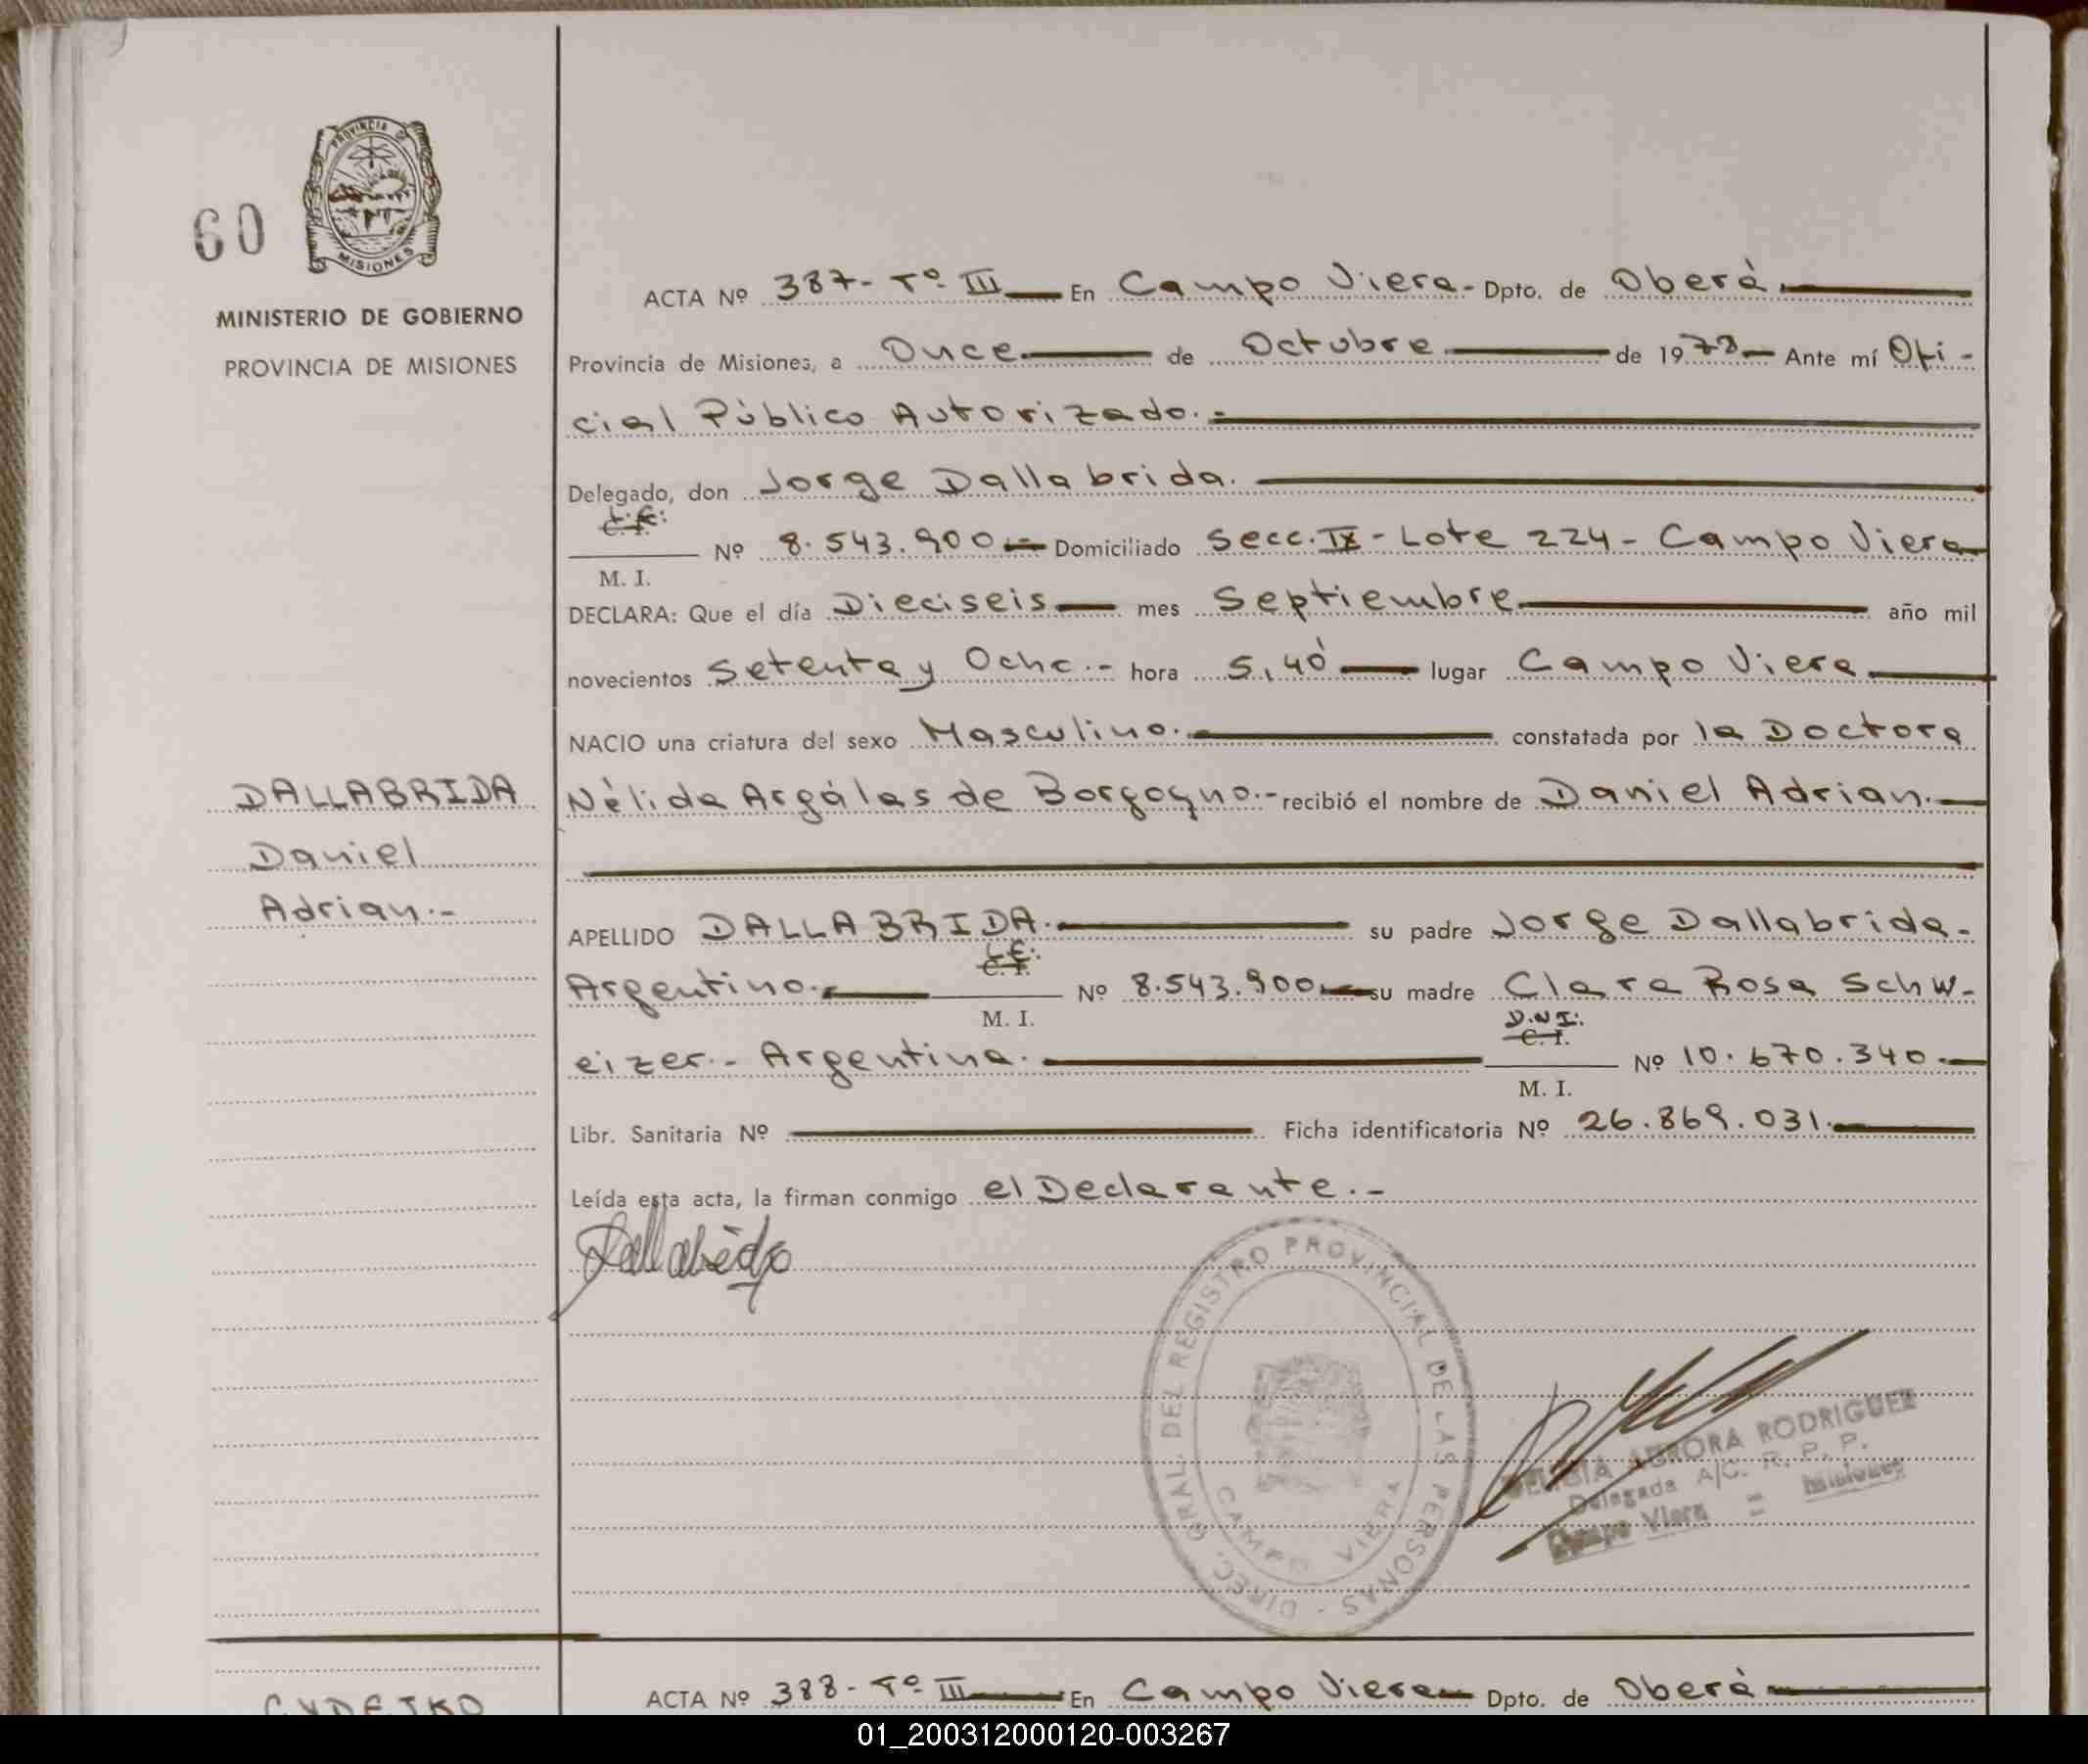 60
PROVINCIA DE
MISIONES
MINISTERIO DE GOBIERNO
PROVINCIA DE MISIONES
ACTA Nº 387- Tº III En Campo Viera- Dpto. de Oberá.
Provincia de Misiones, a Once de Octubre de 1978 Ante mí Ofi-
cial Público Autorizado.-
Delegado, don Jorge Dallabrida.
L.E:
C. I.
Nº 8.543.900.- Domiciliado Secc. IX - Lote 224 - Campo Viera
M. I.
DECLARA: Que el día Dieciseis mes Septiembre año mil
novecientos Setenta y Ocho.- hora 5,40 lugar Campo Viera
NACIO una criatura del sexo Masculino. constatada por la Doctora
Nélida Argálas de Borgogno.- recibió el nombre de Daniel Adrian.-
DALLABRIDA
Daniel
Adrian.-
APELLIDO DALLABRIDA. su padre Jorge Dallabrida.-
L.E:
C. I.
Argentino. Nº 8.543.900.- su madre Clara Rosa Schw-
M. I.
D.N.I:
C. I.
eizer.- Argentina. Nº 10.670.340.-
M. I.
Libr. Sanitaria Nº Ficha identificatoria Nº 26.869.031.
Leída esta acta, la firman conmigo el Declarante.-
DIREC. GRAL. DEL REGISTRO PROVINCIAL DE LAS PERSONAS -
CAMPO VIERA
AURORA RODRIGUEZ
Delegada A/C. R. P. P.
Campo Viera = Misiones
ACTA Nº 388- Tº III En Campo Viera Dpto. de Oberá
01_200312000120-003267